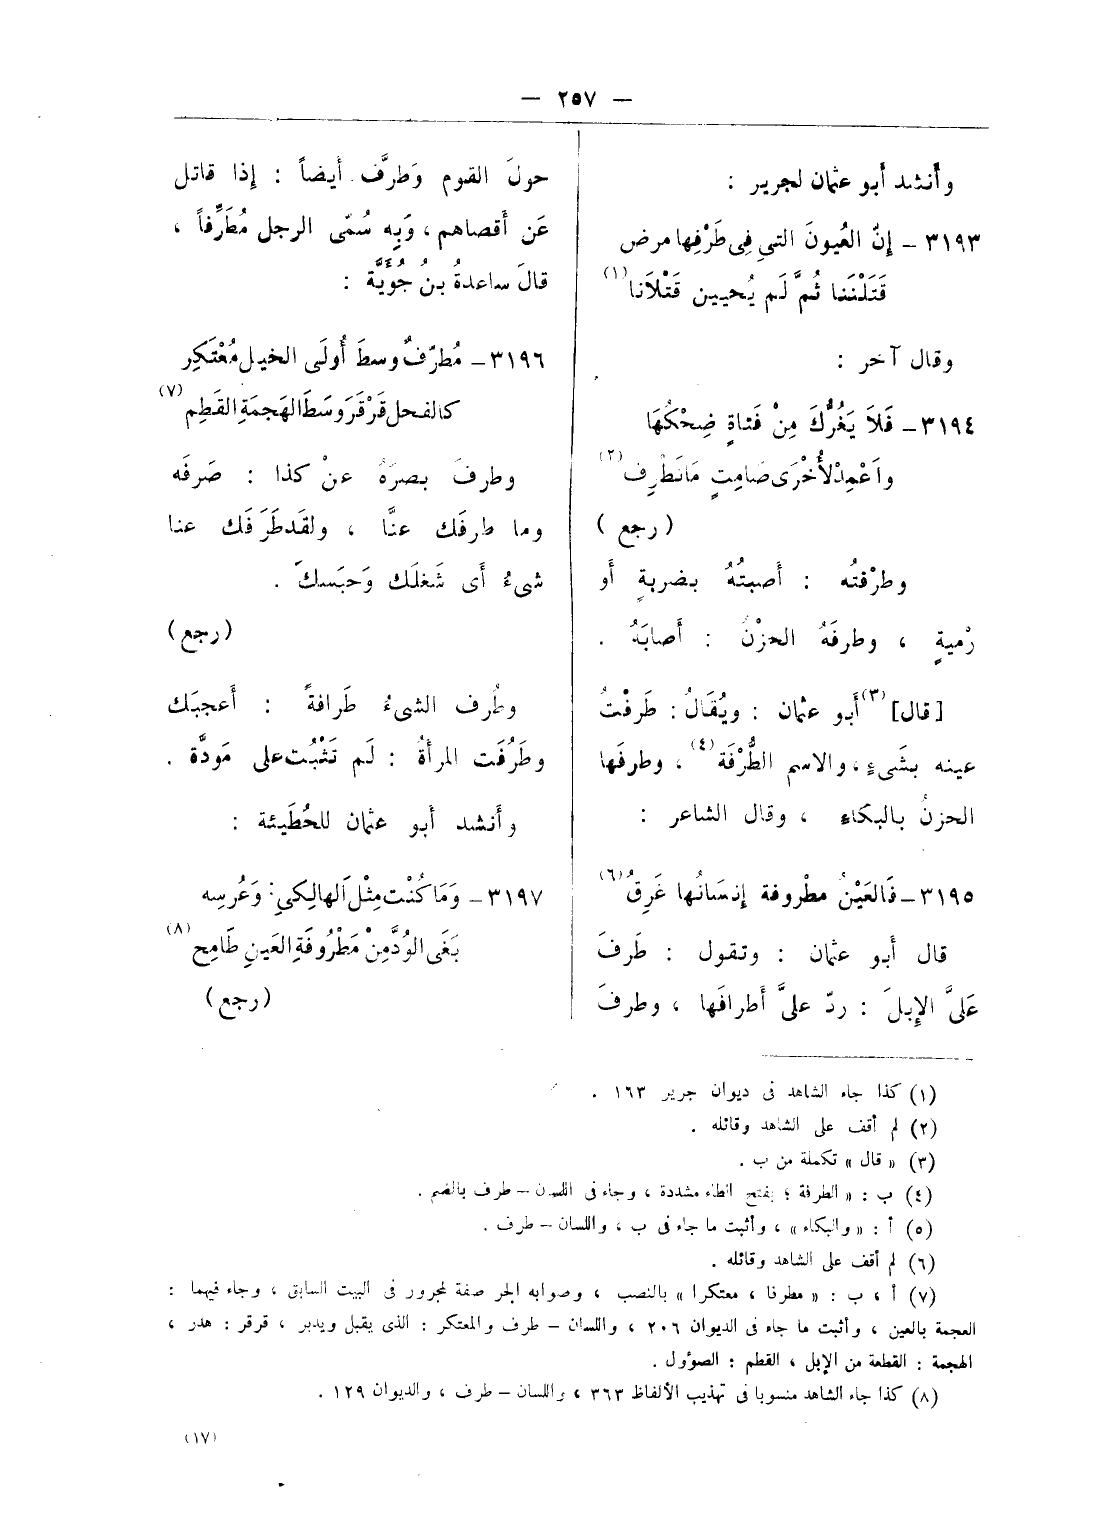 — ٢٥٧ —
وأنشد أبو عثمان لجرير :
٣١٩٣ – إِنَّ العُيونَ التىِ فِى طَرْفِها مرض
قَتَلْنَنا ثُمَّ لَم يُحيين قَتْلَانا(١)
وقال آخر :
٣١٩٤ – فَلاَ يَغُرُّكَ مِنْ فَتاةٍ ضِحْكُهَا
واَعْمِدْ لأُخْرَى صَامِتٍ مَا تَطْرِف(٢)
(رجع)
وطرْفتُه : أصبتُهُ بضربةٍ أو
رْميةٍ ، وطرفَهُ الحزْنُ : أصابَهُ .
[قال](٣) أبو عثمان : ويُقَالُ : طَرَفْتُ
عينه بشَىءٍ ، والاسم الطُّرْفَة(٤) ، وطرفَها
الحزنُ بالبكاء ، وقال الشاعر :
٣١٩٥ – فَالعَيْنُ مطْروفة إِنسَانُها غَرِقُ(٦)
قال أبو عثمان : وتقول : طَرفَ
عَلىَّ الإِبلَ : ردّ علىَّ أَطرافَها ، وطرفَ
حولَ القوم وَطرَّف أيضاً : إِذا قاتل
عَن أَقصاهم ، وَبِه سُمّى الرجل مُطَرِّفاً ،
قالَ ساعدةُ بنُ جُؤَيَّة :
٣١٩٦ – مُطرّفٌ وسطَ أُولَى الخيل مُعْتَكِر
كالفحل قَرْقَرَ وَسَطَ الهَجمَةِ القَطِم(٧)
وطرفَ بصرَهُ عنْ كذا : صَرفَه
وما طرفَك عنَّا ، ولقَد طَرَفَك عنا
شىءُ أَى شَغلَك وَحبَسكَ .
(رجع)
وطُرف الشىءُ طَرافةً : أَعجبَك
وطَرُفَت المرأةُ : لَم تَثْبُت على مَودَّة .
وأنشد أبو عثمان للحُطَيئة :
٣١٩٧ – وَمَا كُنْت مِثْلَ الهالِكىِ وَعُرسِه
بَغَى الوُدَّ مِنْ مَطْرُوفَةِ العَينِ طَامِح(٨)
(رجع)
(١) كذا جاء الشاهد فى ديوان جرير ١٦٣ .
(٢) لم أقف على الشاهد وقائله .
(٣) « قال » تكملة من ب .
(٤) ب : « الطرفة ؛ بفتح الطاء مشددة ، وجاء فى اللسان – طرف بالضم .
(٥) أ : « والبكاء » ، وأثبت ما جاء فى ب ، واللسان – طرف .
(٦) لم أقف على الشاهد وقائله .
(٧) أ ، ب : « مطرفا ، معتكرا » بالنصب ، وصوابه الجر صفة لمجرور فى البيت السابق ، وجاء فيهما :
العجمة بالعين ، وأثبت ما جاء فى الديوان ٢٠٦ ، واللسان – طرف والمعتكر : الذى يقبل ويدبر ، قرقر : هدر ،
الهجمة : القطعة من الإبل ، القطم : الصؤول .
(٨) كذا جاء الشاهد منسوبا فى تهذيب الألفاظ ٣٦٣ ، واللسان – طرف ، والديوان ١٢٩ .
(١٧)